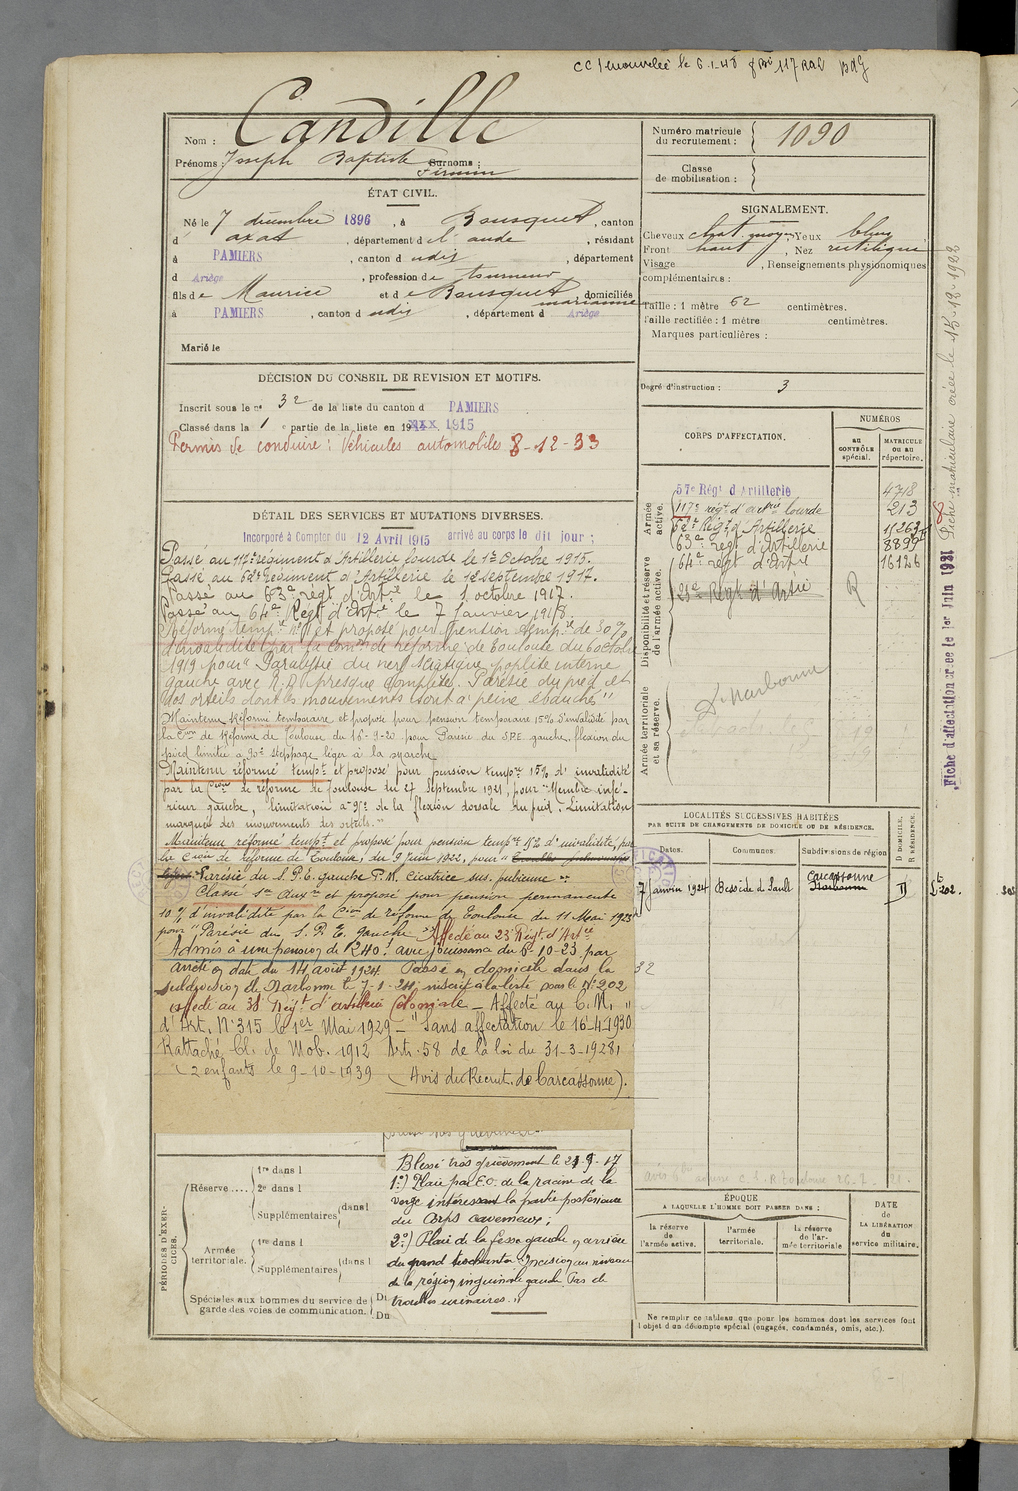 CC renouvelée le 6.1.40
Candille
Nom :
Prénoms : Joseph Baptiste Surnoms :
Firmin
ÉTAT CIVIL.
Né le 7 décembre 1896, à Bousquet, canton
d' axat, département de l'aude, résidant
à PAMIERS, canton d udis, département
d Ariège, profession de tourneur
fils de Maurice et de Bousquet marianne, domiciliés
à PAMIERS, canton d udis, département d Ariège
Marié le
DÉCISION DU CONSEIL DE REVISION ET MOTIFS.
Inscrit sous le n° 32 de la liste du canton d PAMIERS
Classé dans la 1 e partie de la liste en 19 1915
Permis de conduire : Véhicules automobiles 8-12-33
DÉTAIL DES SERVICES ET MUTATIONS DIVERSES.
Incorporé à Compter du 12 Avril 1915 arrivé au corps le dit jour ;
Passé au 117e régiment d'Artillerie lourde le 1er Octobre 1915.
Passé au 62e régiment d'Artillerie le 1er septembre 1917.
Passé au 63e regt d'Artie le 1 octobre 1917.
Passé au 64e Régt d'Artie le 7 Janvier 1918.
Réformé tempre n°1 et proposé pour pension tempre de 30%
d'invalidité par la Comon de réforme de Toulouse du 6 octobre
1919 pour "Paralysie du nerf sciatique poplité interne
gauche avec R.D. presque complète. Parésie du pied et
des orteils dont les mouvements sont à peine ébauchés"
Maintenu réformé temporaire et proposé pour pension temporaire 15% d'invalidité par
la Cion de Réforme de Toulouse du 16-9-20 pour Parésie du S.P.E. gauche, flexion du
pied limitée à 90° steppage léger à la marche
Maintenu réformé tempre et proposé pour pension tempre 15% d'invalidité
par la Cion de réforme de Toulouse du 27 Septembre 1921, pour "Membre infé-
rieur gauche, limitation à 95° de la flexion dorsale du pied. Limitation
marquée des mouvements des orteils."
Maintenu réformé tempre et proposé pour pension tempre 15% d'invalidité, par
la Cion de Réforme de Toulouse, du 9 juin 1922, pour
Parésie du S.P.E. gauche P.M. Cicatrice sus. pubienne "
Classé Sce Auxre et proposé pour pension permanente
10% d'invalidité par la Cion de réforme de Toulouse du 11 Mai 1923
pour "Parésie du S.P.E. gauche" Affecté au 23e Régt d'Artie
Admis à une pension de 240f avec jouissance du 6-10-23 par
arrêté en date du 14 août 1924 Passé en domicile dans la
subdivision de Narbonne le 7-1-24, inscrit à la liste sous le N° 202
affecté au 38e Régt d'artillerie Coloniale - Affecté au C.M.
d'Art. N° 315 le 1er Mai 1929 - "Sans affectation le 16-4-1930
Rattaché Cl. de Mob. 1912 Art. 58 de la loi du 31-3-1928
(2 enfants le 9-10-1939 (Avis du Recrut. de Carcassonne).
PÉRIODES D'EXERCICES.
Réserve....
1re dans l
2e dans l
Supplémentaires
dans l
Armée territoriale.
1re dans l
Supplémentaires
dans l
Spéciales aux hommes du service de garde des voies de communication.
Du
Du
Blessé très grièvement le 21-9-17
1°) Plaie par E.O. de la racine de la
verge intéressant la partie postérieure
du Corps caverneux ;
2°) Plaie de la fesse gauche en arrière
du grand trochanter. Incision au niveau
de la région inguinale gauche. Pas de
troubles urinaires."
Numéro matricule du recrutement : 1090
Classe de mobilisation :
SIGNALEMENT.
Cheveux chat. moyen, Yeux bleus
Front haut, Nez rectiligne
Visage , Renseignements physionomiques
complémentaires :
Taille : 1 mètre 62 centimètres.
Taille rectifiée : 1 mètre centimètres.
Marques particulières :
Degré d'instruction : 3
CORPS D'AFFECTATION.
NUMÉROS
au CONTRÔLE spécial.
MATRICULE ou au répertoire.
Armée active.
57e Régt d'Artillerie 4718
117e régt d'artie lourde 213
62e Régt d'Artillerie 11263
63e regt d'Artillerie 8899
64e regt d'Artie 16126
Disponibilité et réserve de l'armée active.
23e Régt d'Artie R
Armée territoriale et sa réserve.
D. Narbonne
LOCALITÉS SUCCESSIVES HABITÉES
PAR SUITE DE CHANGEMENTS DE DOMICILE OU DE RÉSIDENCE.
Dates.
Communes.
Subdivisions de région
D DOMICILE. R RÉSIDENCE.
Carcassonne
7 janvier 1924 Narbonne D Lt 202.
32
ÉPOQUE
A LAQUELLE L'HOMME DOIT PASSER DANS :
la réserve de l'armée active.
l'armée territoriale.
la réserve de l'armée territoriale
DATE de LA LIBÉRATION du service militaire.
Ne remplir ce tableau que pour les hommes dont les services font
l'objet d'un décompte spécial (engagés, condamnés, omis, etc.).
Fiche d'affectation créée le 1er Juin 1931
Fiche matriculaire créée le 15-12-1928